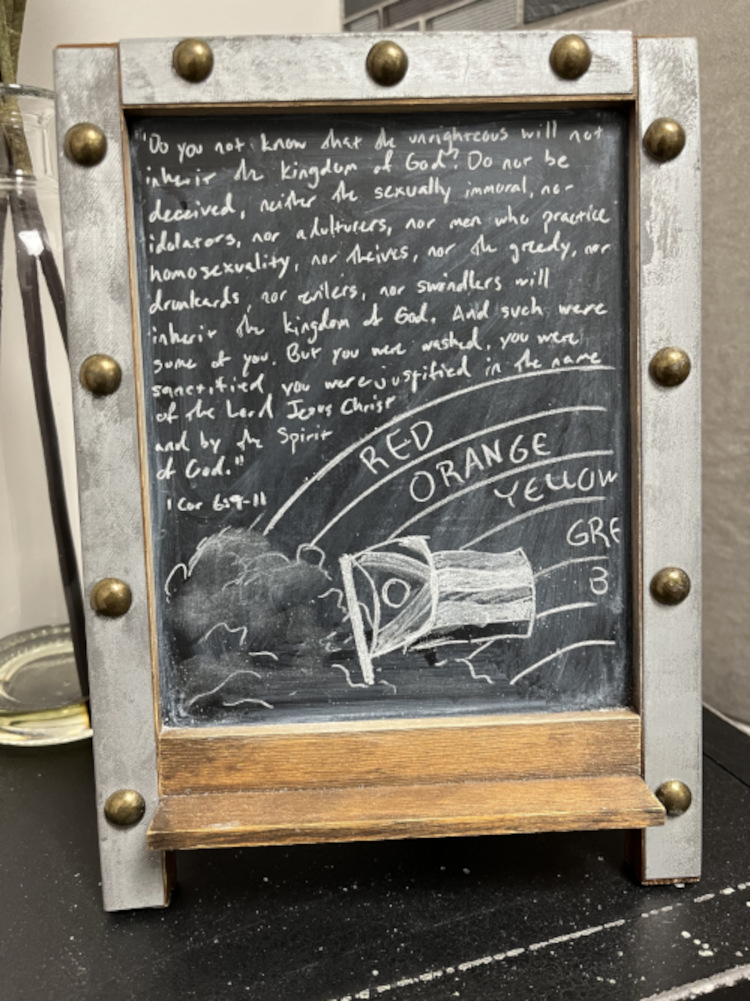 "Do you not know that the unrighteous will not
inherit the kingdom of God? Do not be
deceived, neither the sexually immoral, nor
idolators, nor adulturers, nor men who practice
homosexuality, nor theives, nor the greedy, nor
drunkards, nor revilers, nor swindlers will
inherit the kingdom of God. And such were
some of you. But you were washed, you were
sanctified you were justified in the name
of the Lord Jesus Christ
and by the Spirit
of God."
1 Cor 6:9-11
RED
ORANGE
YELLOW
GRE
B